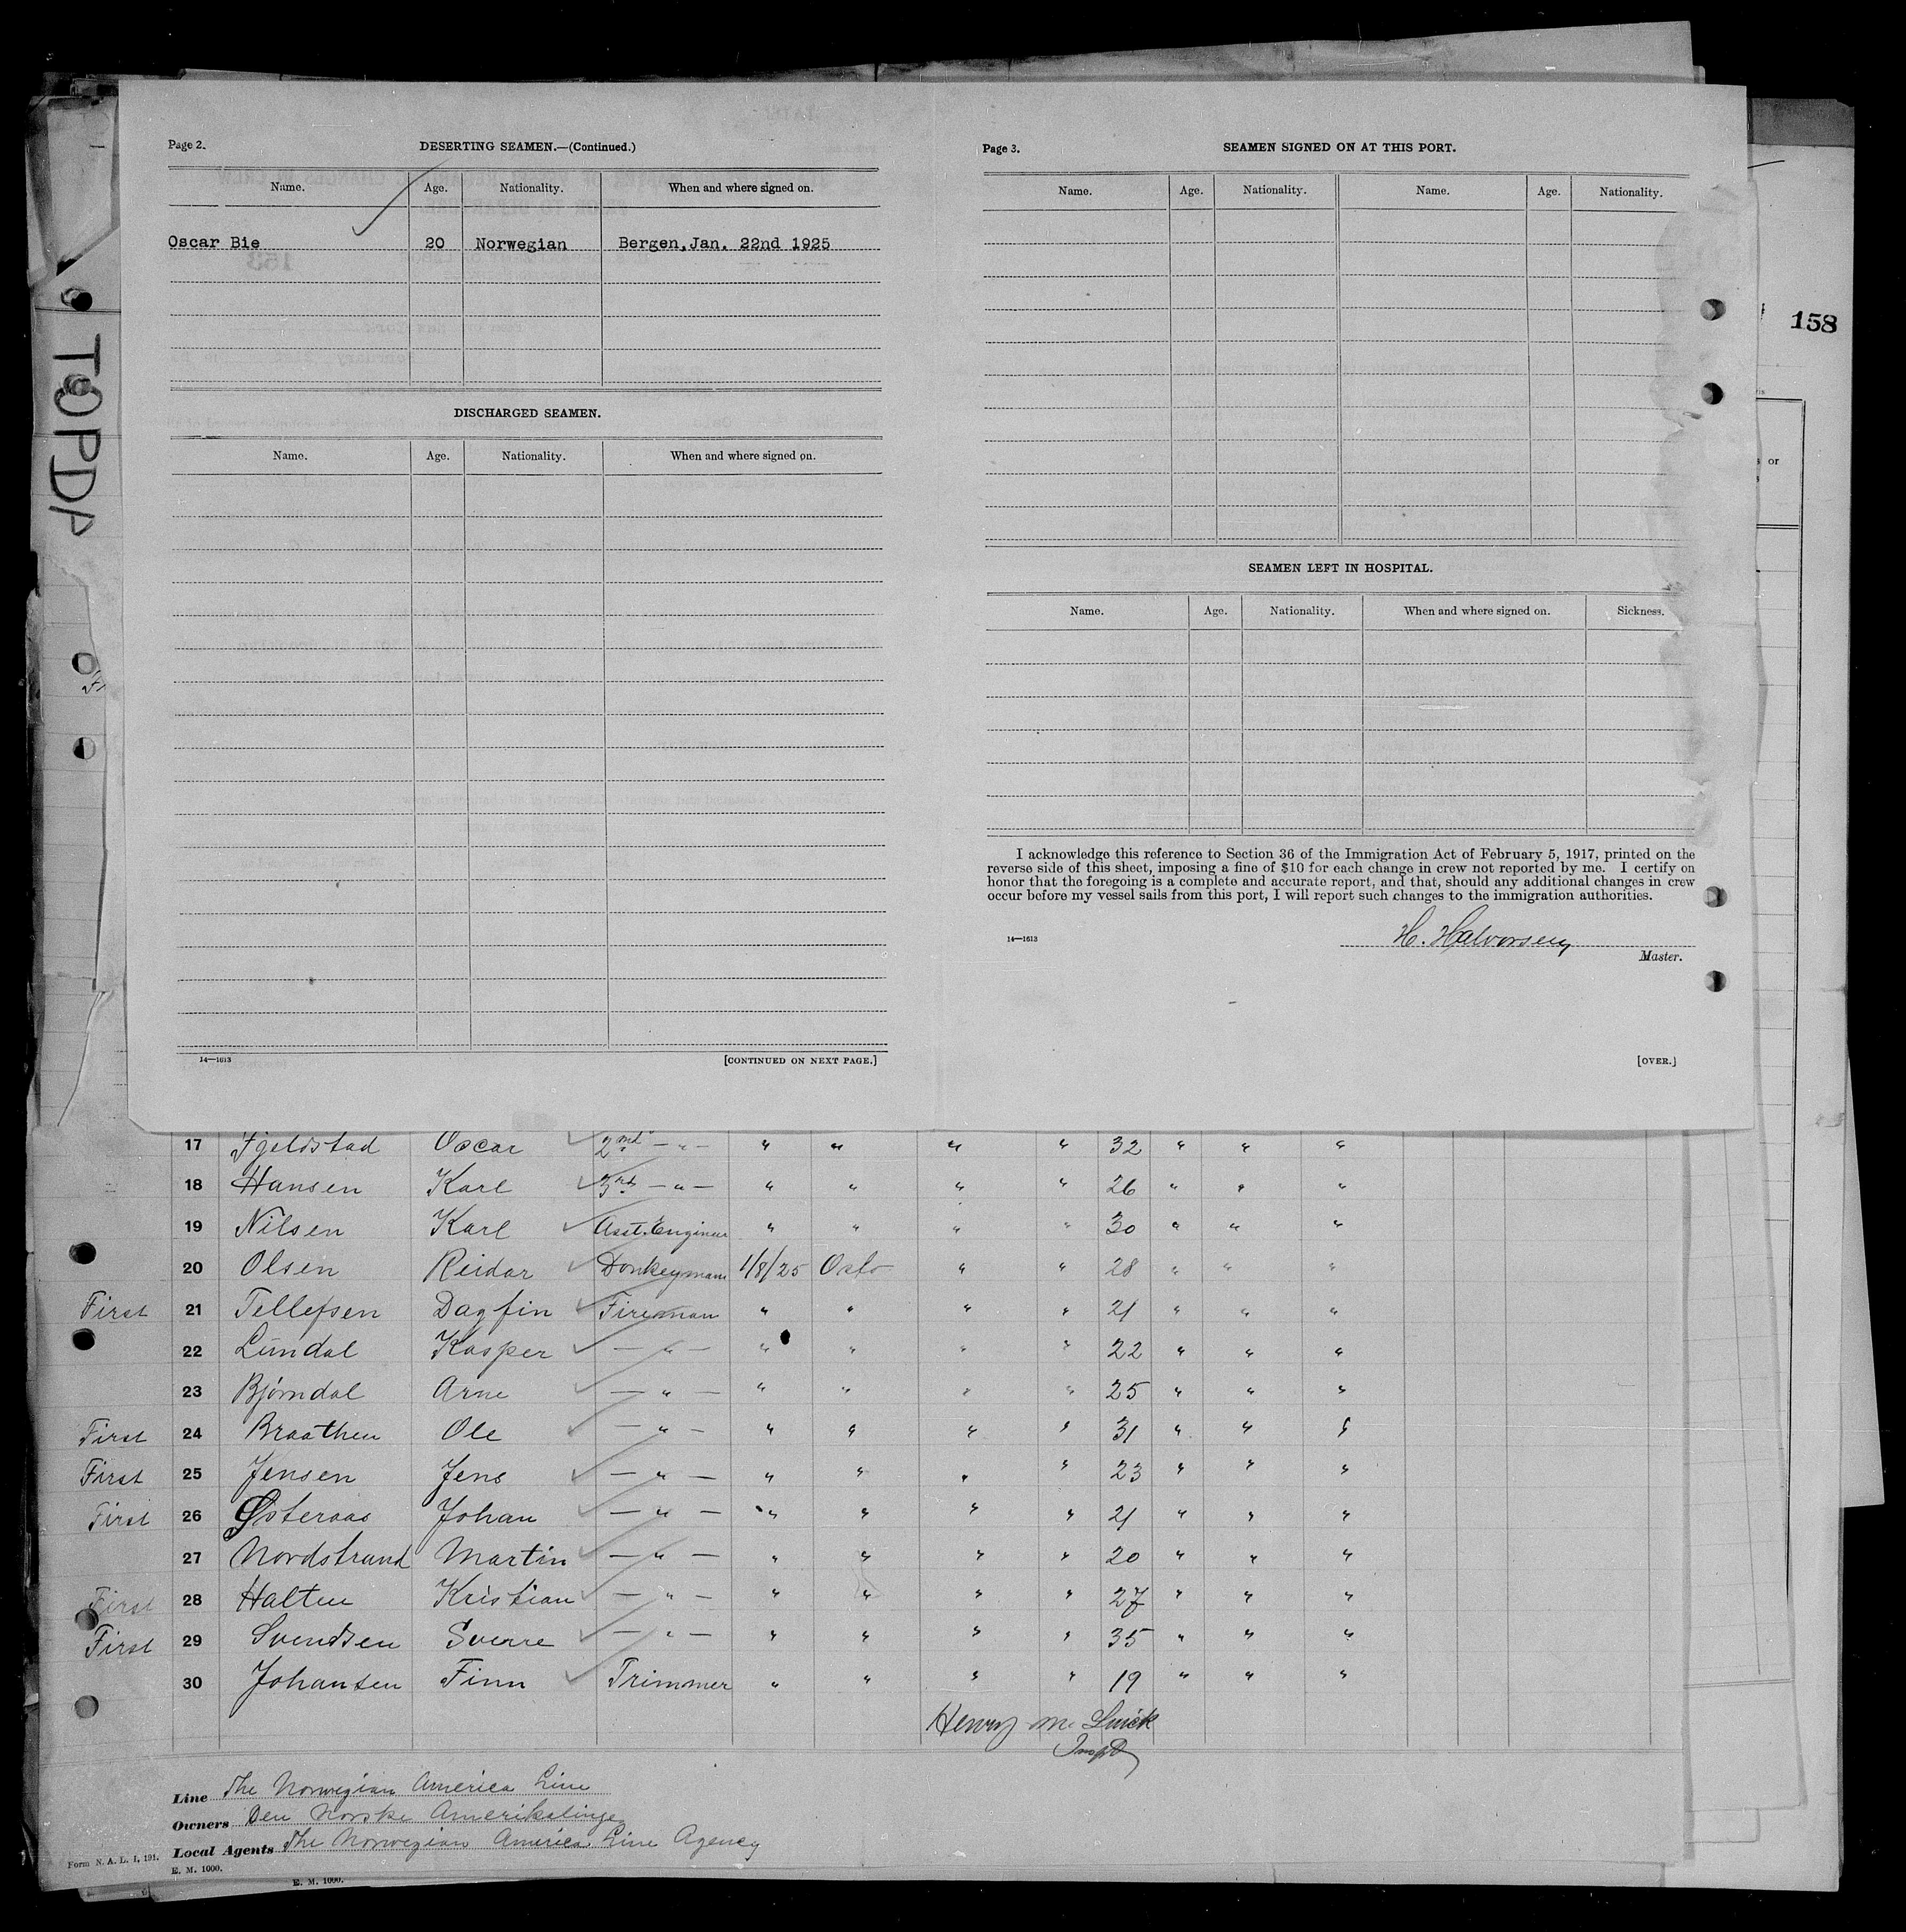 Page 2. DESERTING SEAMEN.—(Continued.)
Name. Age. Nationality. When and where signed on.
Oscar Bie 20 Norwegian Bergen, Jan. 22nd 1925
DISCHARGED SEAMEN.
Name. Age. Nationality. When and where signed on.
14—1613 [CONTINUED ON NEXT PAGE.]
Page 3. SEAMEN SIGNED ON AT THIS PORT.
Name. Age. Nationality. Name. Age. Nationality.
SEAMEN LEFT IN HOSPITAL.
Name. Age. Nationality. When and where signed on. Sickness.
I acknowledge this reference to Section 36 of the Immigration Act of February 5, 1917, printed on the
reverse side of this sheet, imposing a fine of $10 for each change in crew not reported by me. I certify on
honor that the foregoing is a complete and accurate report, and that, should any additional changes in crew
occur before my vessel sails from this port, I will report such changes to the immigration authorities.
14—1613
H. Halvorsen
Master.
[OVER.]
158
or
TOPDP
17 Fjeldstad Oscar 2nd — " — " " " " 32 " " "
18 Hansen Karl 3rd — " — " " " " 26 " " "
19 Nilsen Karl Asst. Engineer " " " " 30 " " "
20 Olsen Reidar Donkeyman 1/8/25 Oslo " " 28 " " "
First 21 Tellefsen Dagfin Fireman " " " " 21 " " "
22 Lundal Kasper — " — " " " " 22 " " "
23 Bjørndal Arne — " — " " " " 25 " " "
First 24 Braathen Ole — " — " " " " 31 " " "
First 25 Jensen Jens — " — " " " " 23 " " "
First 26 Østeraas Johan — " — " " " " 21 " " "
27 Nordstrand Martin — " — " " " " 20 " " "
First 28 Halten Kristian — " — " " " " 27 " " "
First 29 Svendsen Sverre — " — " " " " 35 " " "
30 Johansen Finn Trimmer " " " " 19 " " "
Henry
Line The Norwegian America Line
Owners Den Norske Amerikalinje
Local Agents The Norwegian America Line Agency
Form N. A. L. I, 191.
E. M. 1000.
E. M. 1000.